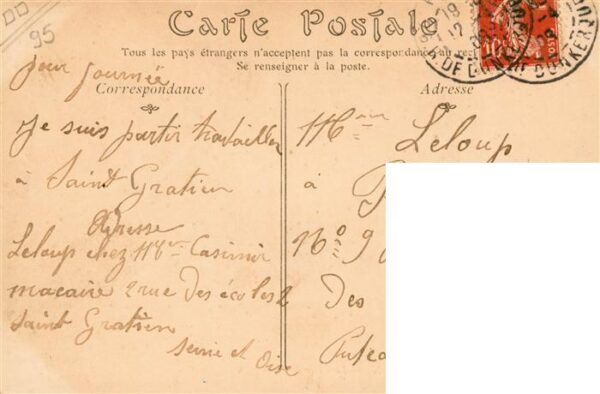 DD
95
Carte Postale
Tous les pays étrangers n'acceptent pas la correspondance au
Se renseigner à la poste.
Correspondance
Adresse
journée
Je suis partir travailler
à Saint Gratien
Adresse
Leloup chez Mr Casimir
macaire 2 rue des écoles 2
Saint Gratien
Seine et Oise
Leloup
à
No 9
Des
R. DE DUNKERQUE